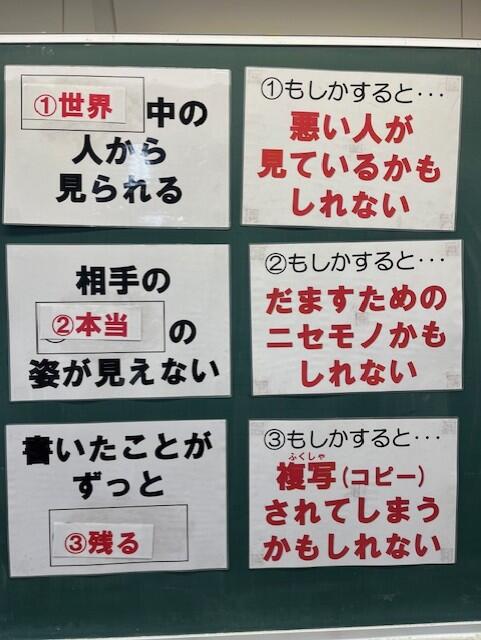 ①世界中の
人から
見られる
①もしかすると･･･
悪い人が
見ているかも
しれない
相手の
②本当の
姿が見えない
②もしかすると･･･
だますための
ニセモノかも
しれない
書いたことが
ずっと
③残る
③もしかすると･･･
ふくしゃ
複写(コピー)
されてしまう
かもしれない